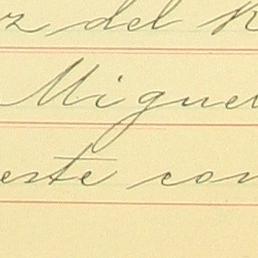 z del R
Miguel
este con